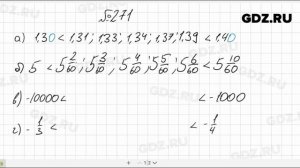 GDZ.RU
№271
а) 1,30 < 1,31; 1,33; 1,34; 1,37; 1,39 < 1,40
б) 5 < 5 2/60; 5 3/60; 5 4/60; 5 5/60; 5 6/60 < 5 10/60
в) -10000 < < -1000
г) - 1/3 < < - 1/4
GDZ.RU